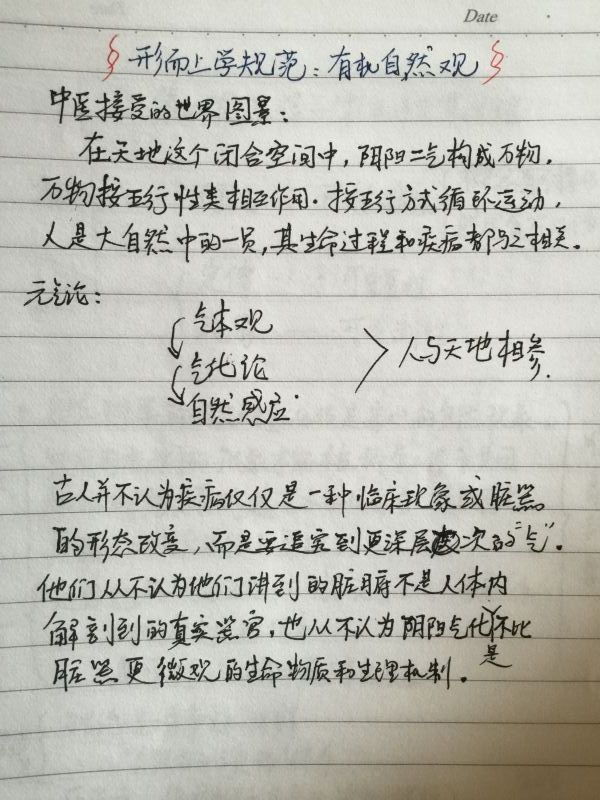 Date
§ 形而上学规范：有机自然观 §
中医接受的世界图景：
在天地这个闭合空间中，阴阳二气构成万物，
万物按五行性类相互作用．按五行方式循环运动，
人是大自然中的一员，其生命过程和疾病都与之相关。
元气论：
气体观
气化论
自然感应
人与天地相参．
古人并不认为疾病仅仅是一种临床现象或脏器
的形态改变，而是要追究到更深层次的“气”．
他们从不认为他们讲到的脏腑不是人体内
解剖到的真实器官，也从不认为阴阳气化不是比
脏器更微观的生命物质和生理机制．